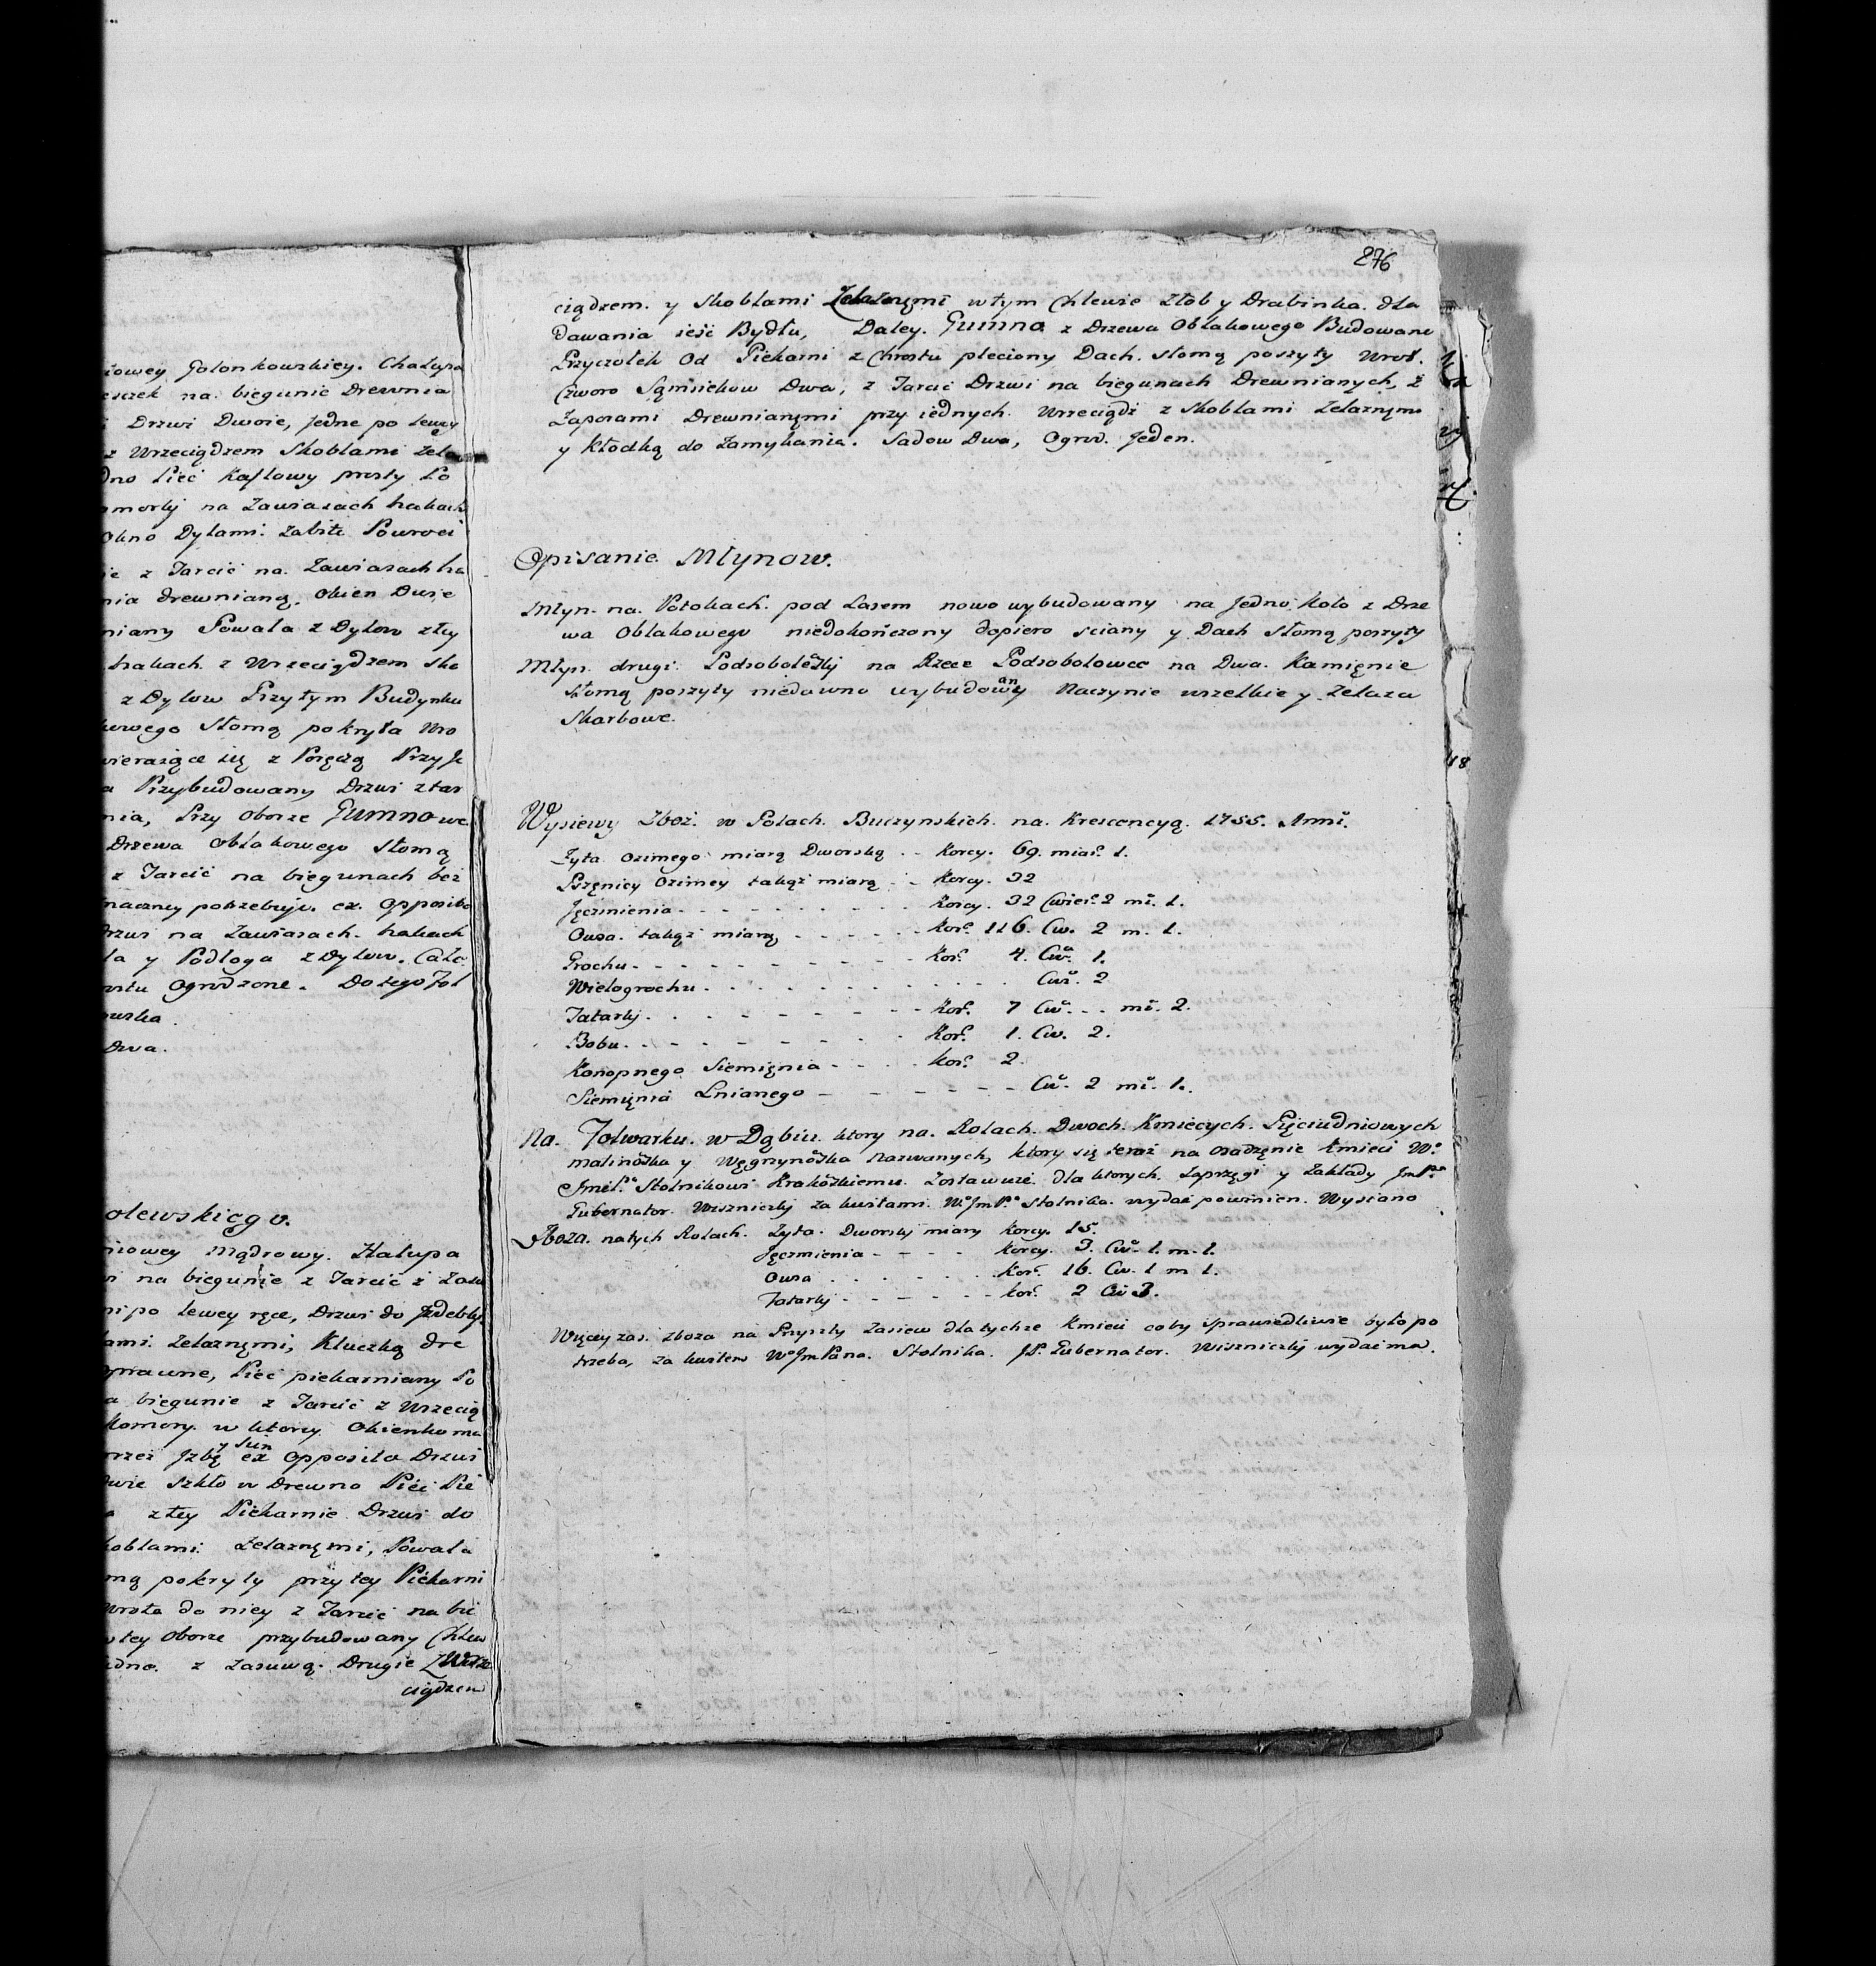 łowey Golonkowskiey. Chałupa
eszek na biegunie Drewnia
Drzwi Dwoie, Jedne po lewey
z Wrzeciądzem Skoblami Zela
dno Piec Kaflowy prosty Po
morki na Zawiasach hakach
Okno Dylami zabite Powroci
ie z Tarcic na Zawiasach ha
nia drewnianą. Okien Dwie
niany Powała z Dylow z tey
hakach z Wrzeciądzem sko
z Dylow Przytym Budynku
kowego Słomą pokryta Wro
wieraiące się z Poręczą Przy Je
a Przybudowany Drzwi z tar
nia, Przy Oborze Gumno we
Drzewa obłakowego słomą
z Tarcic na biegunach bez
naczney potrzebuje. ex opposito
Drzwi na Zawiasach hakach
ła y Podłoga z Dylow. Całe
ostu Ogrodzone. Do tego Fol
wska.
Dwa.
olewskiego.
niowey Mądrowy. Hałupa
i na biegunie z Tarcic z Zasu
ni po lewey ręce, Drzwi do Jzdebky
ami Zelaznęmi, Kluczką dre
oprawne, Piec piekarniany Po
a biegunie z Tarcic z Wrzecią
Komory w ktorey Okienko ma
przez Jzbę y Sień ex Opposito Drzwi
dwie Szkło w Drewno Piec Pie
z tey Piekarnie Drzwi do
koblami Zelaznęmi, Powała
mą pokryty przy tey Piekarni
wrota do niey z Tarcic na bie
w tey Oborze przybudowany Chlew
edno z Zasuwą. Drugie z Wrze
ciądzem
276
ciądzem y Skoblami Zelaznęmi w tym Chlewie złob y Drabinka dla
dawania ieść Bydłu, Daley. Gumno z Drzewa Obłakowego Budowane
Przyczołek Od Piekarni z Chrostu pleciony Dach słomą poszyty Wrot
Czworo Sąmsiekow Dwa, z Tarcic Drzwi na biegunach Drewnianych, z
Zaporami Drewnianęmi przy iednych Wrzeciądz z Skoblami zelaznęmi
y Kłodką do Zamykania. Sadow Dwa, Ogrod Jeden.
Opisanie Młynow.
Młyn na Potokach pod Lasem nowo wybudowany na Jedno Koło z Drze
wa Obłakowego niedokończony dopiero sciany y Dach słomą poszyty
Młyn drugi Podsoboleski na Rzece Podsobolowce na Dwa Kamięnie
słomą poszyty niedawno wybudowany Naczynie wszelkie y zelaza
Skarbowe.
Wysiewy Zboż w Polach Buczynskich na Krescencyą 1755. Anni.
Zyta ozimego miarą Dworską - - Korcy. 69. miar. 1.
Pszęnicy Ozimey takąż miarą - - Korcy. 32
Jęczmienia - - - - - - - - Korcy. 32 Cwier. 2 mi. 1.
Owsa takąż miarą - - - - - - Kor. 116. Cw. 2 m. 1.
Grochu - - - - - - - - - - Kor. 4. Cw. 1.
Wielogrochu - - - - - - - - - - Cw. 2
Tatarky - - - - - - - - - Kor. 7 Cw. - - mi. 2.
Bobu - - - - - - - - - Kor. 1. Cw. 2.
Konopnego Siemięnia - - - - Kor. 2.
Siemięnia Lnianego - - - - - - - Cw. 2 mi. 1.
Na Folwarku w Dąbiu ktory na Rolach Dwoch Kmiecych Pięciudniowych
malinoska y Węgrzynoska nazwanych, ktory się teraz na osadzęnie kmieci W.
Jmci P. Stolnikowi Krakoskiemu Zostawuie dla ktorych Zaprzęgi y Zakłady Jm P.
Gubernator Wisznicky za kwitami W. Jm P. Stolnika wydać powinien. Wysiano
Zboza na tych Rolach. Zyta Dworsky miary Korcy. 15.
Jęczmienia - - - - Korcy. 3. Cw. 1. m. 1.
Owsa - - - - - - Kor. 16. Cw. 1 m 1.
Tatarky - - - - - - Kor. 2 Cw 3.
Więcey zas zboza na Przyszły Zasiew dla tychze Kmieci coby sprawiedliwie było po
trzeba, za kwitem W. Jm Pana Stolnika J P. Gubernator Wisznicky wydać ma.